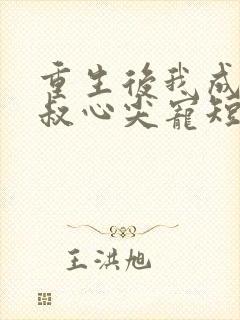 重生後我成
叔心尖寵短
王洪旭